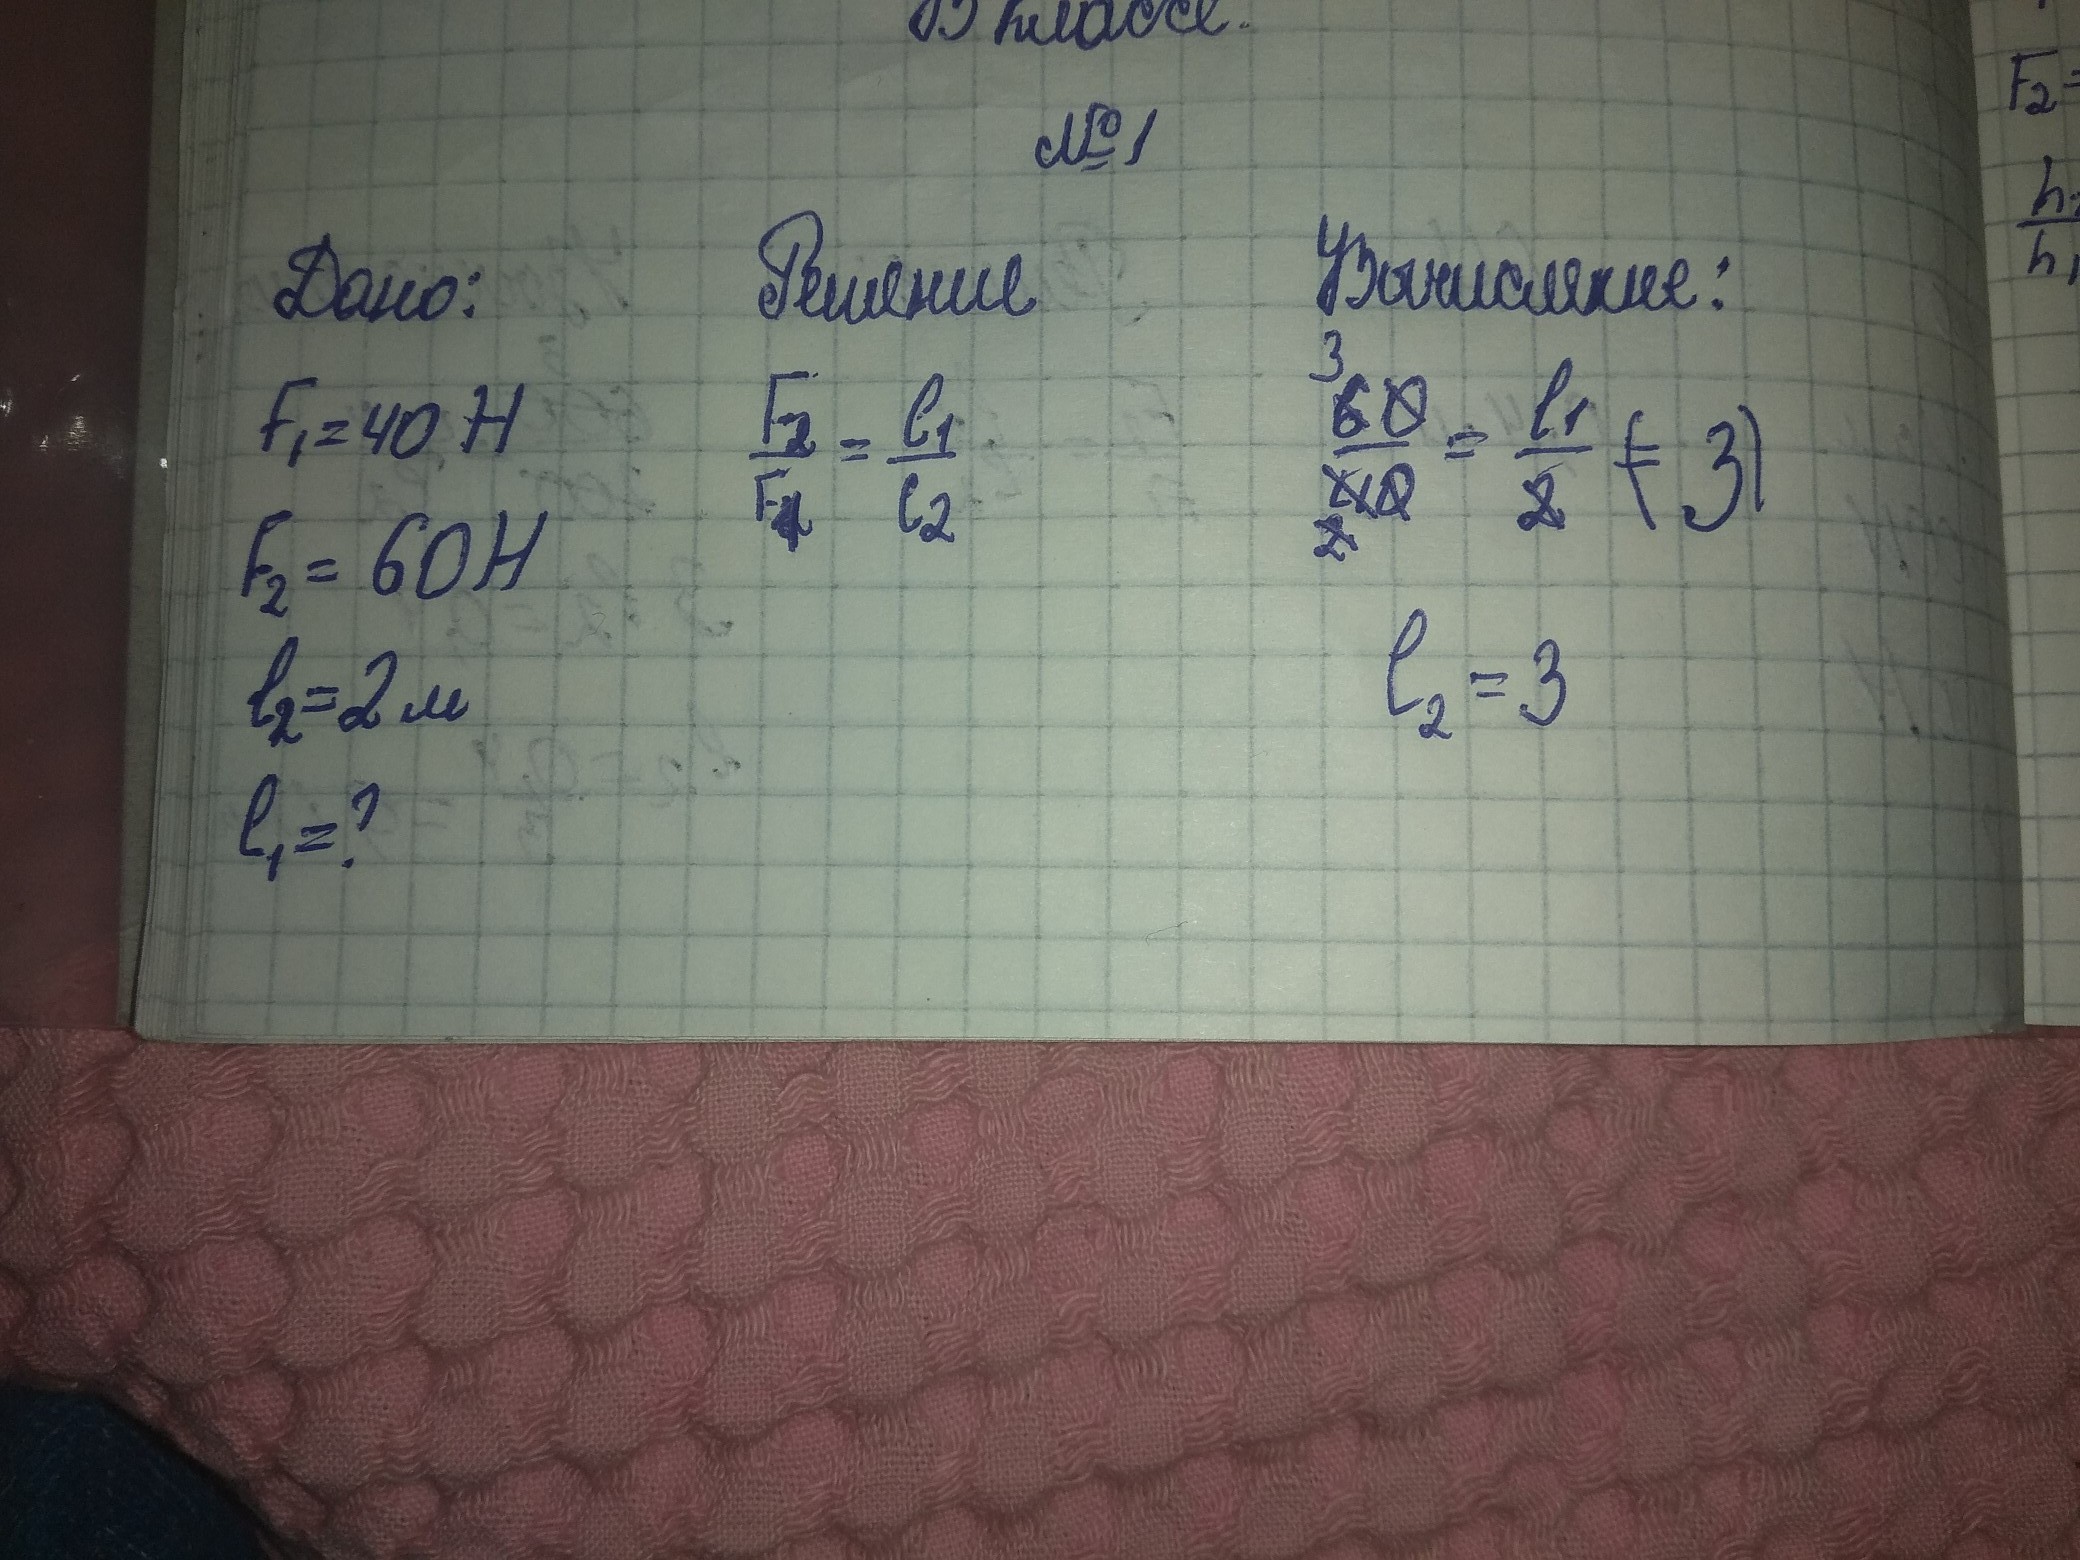 В классе.
№1
Дано:
F₁=40 Н
F₂ = 60Н
l₂=2 м
l₁=?
Решение
F₂/F₁ = l₁/l₂
Вычисление:
3
60/40 = l₁/2 (= 3)
2
l₂ = 3
F₂=
h₂
h₁